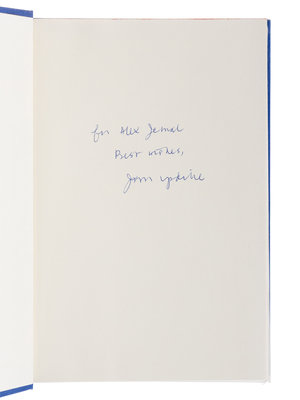 for Alex Jemal
Best wishes,
John Updike